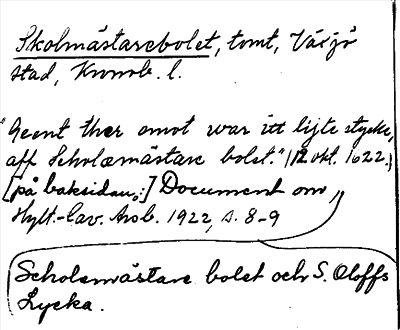 Skolmästarebolet, tomt, Växjö
stad, Kronob. l.
"Gent ther emot war itt lijte stycke,
aff Scholæmästare bolet." (12 okt. 1622.)
[på baksidan:] Document om "
Hylt.-Cav. Årsb. 1922, s. 8-9
Scholemästare bolet och S. Oloffs
Lycka.